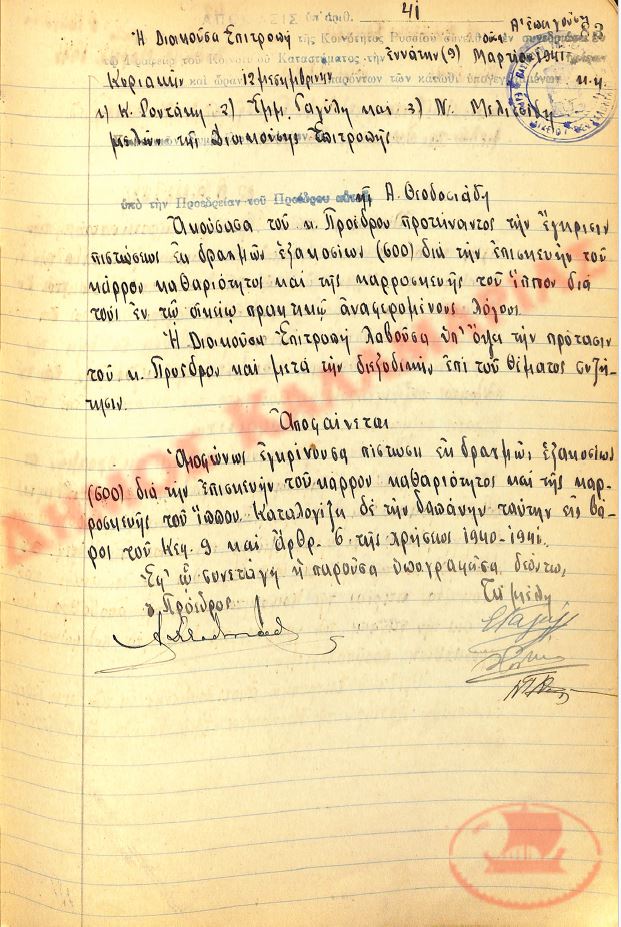 ὑπ' ἀριθ. 41
Ἡ Διοικοῦσα Ἐπιτροπὴ τῆς Κοινότητος Ρυσίου συνελθοῦσα ἐν συνεδριάσει
Καταστήματος τὴν ἐννάτην (9) Μαρτίου 1941
Κυριακὴν καὶ ὥραν 12 μεσημβρινὴν παρόντων τῶν κάτωθι ὑπογεγραμμένων
1) Κ. Ροντάκη 2) Ἐμμ. Γαγύλη καὶ 3) Ν. Μελισίδη
μελῶν τῆς Διοικούσης Ἐπιτροπῆς
ὑπὸ τὴν Προεδρείαν τοῦ Προέδρου αὐτῆς Α. Θεοδοσιάδη
Ἀκούσασα τοῦ κ. Προέδρου προτείναντος τὴν ἔγκρισιν
πιστώσεως ἐκ δραχμῶν ἑξακοσίων (600) διὰ τὴν ἐπισκευὴν τοῦ
κάρρου καθαριότητος καὶ τῆς καρροσκευῆς τοῦ ἵππου διὰ
τοὺς ἐν τῷ οἰκείῳ πρακτικῷ ἀναφερομένους λόγους.
Ἡ Διοικοῦσα Ἐπιτροπὴ λαβοῦσα ὑπ' ὄψει τὴν πρότασιν
τοῦ κ. Προέδρου καὶ μετὰ τὴν διεξοδικὴν ἐπὶ τοῦ θέματος συζή-
τησιν.
Ἀποφαίνεται
Ὁμοφώνως ἐγκρίνουσα πίστωσιν ἐκ δραχμῶν ἑξακοσίων
(600) διὰ τὴν ἐπισκευὴν τοῦ κάρρου καθαριότητος καὶ τῆς καρ-
ροσκευῆς τοῦ ἵππου. Καταλογίζει δὲ τὴν δαπάνην ταύτην εἰς βά-
ρος τοῦ Κεφ. 9 καὶ ἄρθρ. 6 τῆς χρήσεως 1940-1941.
Ἐφ' ᾧ συνετάγη ἡ παροῦσα ὑπογραφεῖσα δεόντως
ὁ Πρόεδρος Τὰ μέλη
ΔΗΜΟΣ ΚΑΛΑΜΑΡΙΑΣ